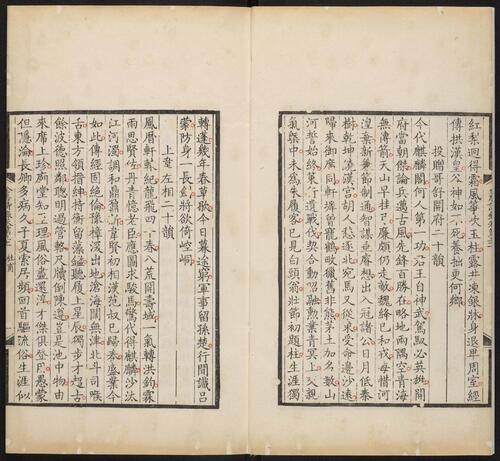 紅梨迥得霜風箏吹玉柱露井凍銀牀身退卑周室經
傳拱漢皇谷神如不死養拙更何鄉
投贈哥舒開府二十韻
今代麒麟閣何人第一功君王自神武駕馭必英雄開
府當朝傑論兵邁古風先鋒百勝在略地兩隅空青海
無傳箭天山早挂弓廉頗仍走敵魏絳已和戎每惜河
湟棄新兼節制通智謀垂睿想出入冠諸公日月低秦
樹乾坤繞漢宮胡人愁逐北宛馬又從東受命邊沙遠
歸來御席同軒墀曾寵鶴畋獵舊非熊茅土加名數山
河誓始終策行遺戰伐契合動昭融勳業青冥上交親
氣概中未爲珠履客已見白頭翁壯節初題柱生涯獨
轉蓬幾年春草歇今日暮途窮軍事留孫楚行間識呂
蒙防身一長劍將欲倚崆峒
上韋左相二十韻
鳳曆軒轅紀龍飛四十春八荒開壽域一氣轉洪鈞霖
雨思賢佐丹青憶老臣應圖求駿馬驚代得麒麟沙汰
江河濁調和鼎鼐新韋賢初相漢范叔已歸秦盛業今
如此傳經固絕倫豫樟深出地滄海闊無津北斗司喉
舌東方領搢紳持衡留藻鑑聽履上星辰獨步才超古
餘波德照鄰聰明過管輅尺牘倒陳遵豈是池中物由
來席上珍廟堂知至理風俗盡還淳才傑俱登用愚蒙
但隱淪長卿多病久子夏索居頻回首驅流俗生涯似
杜甫